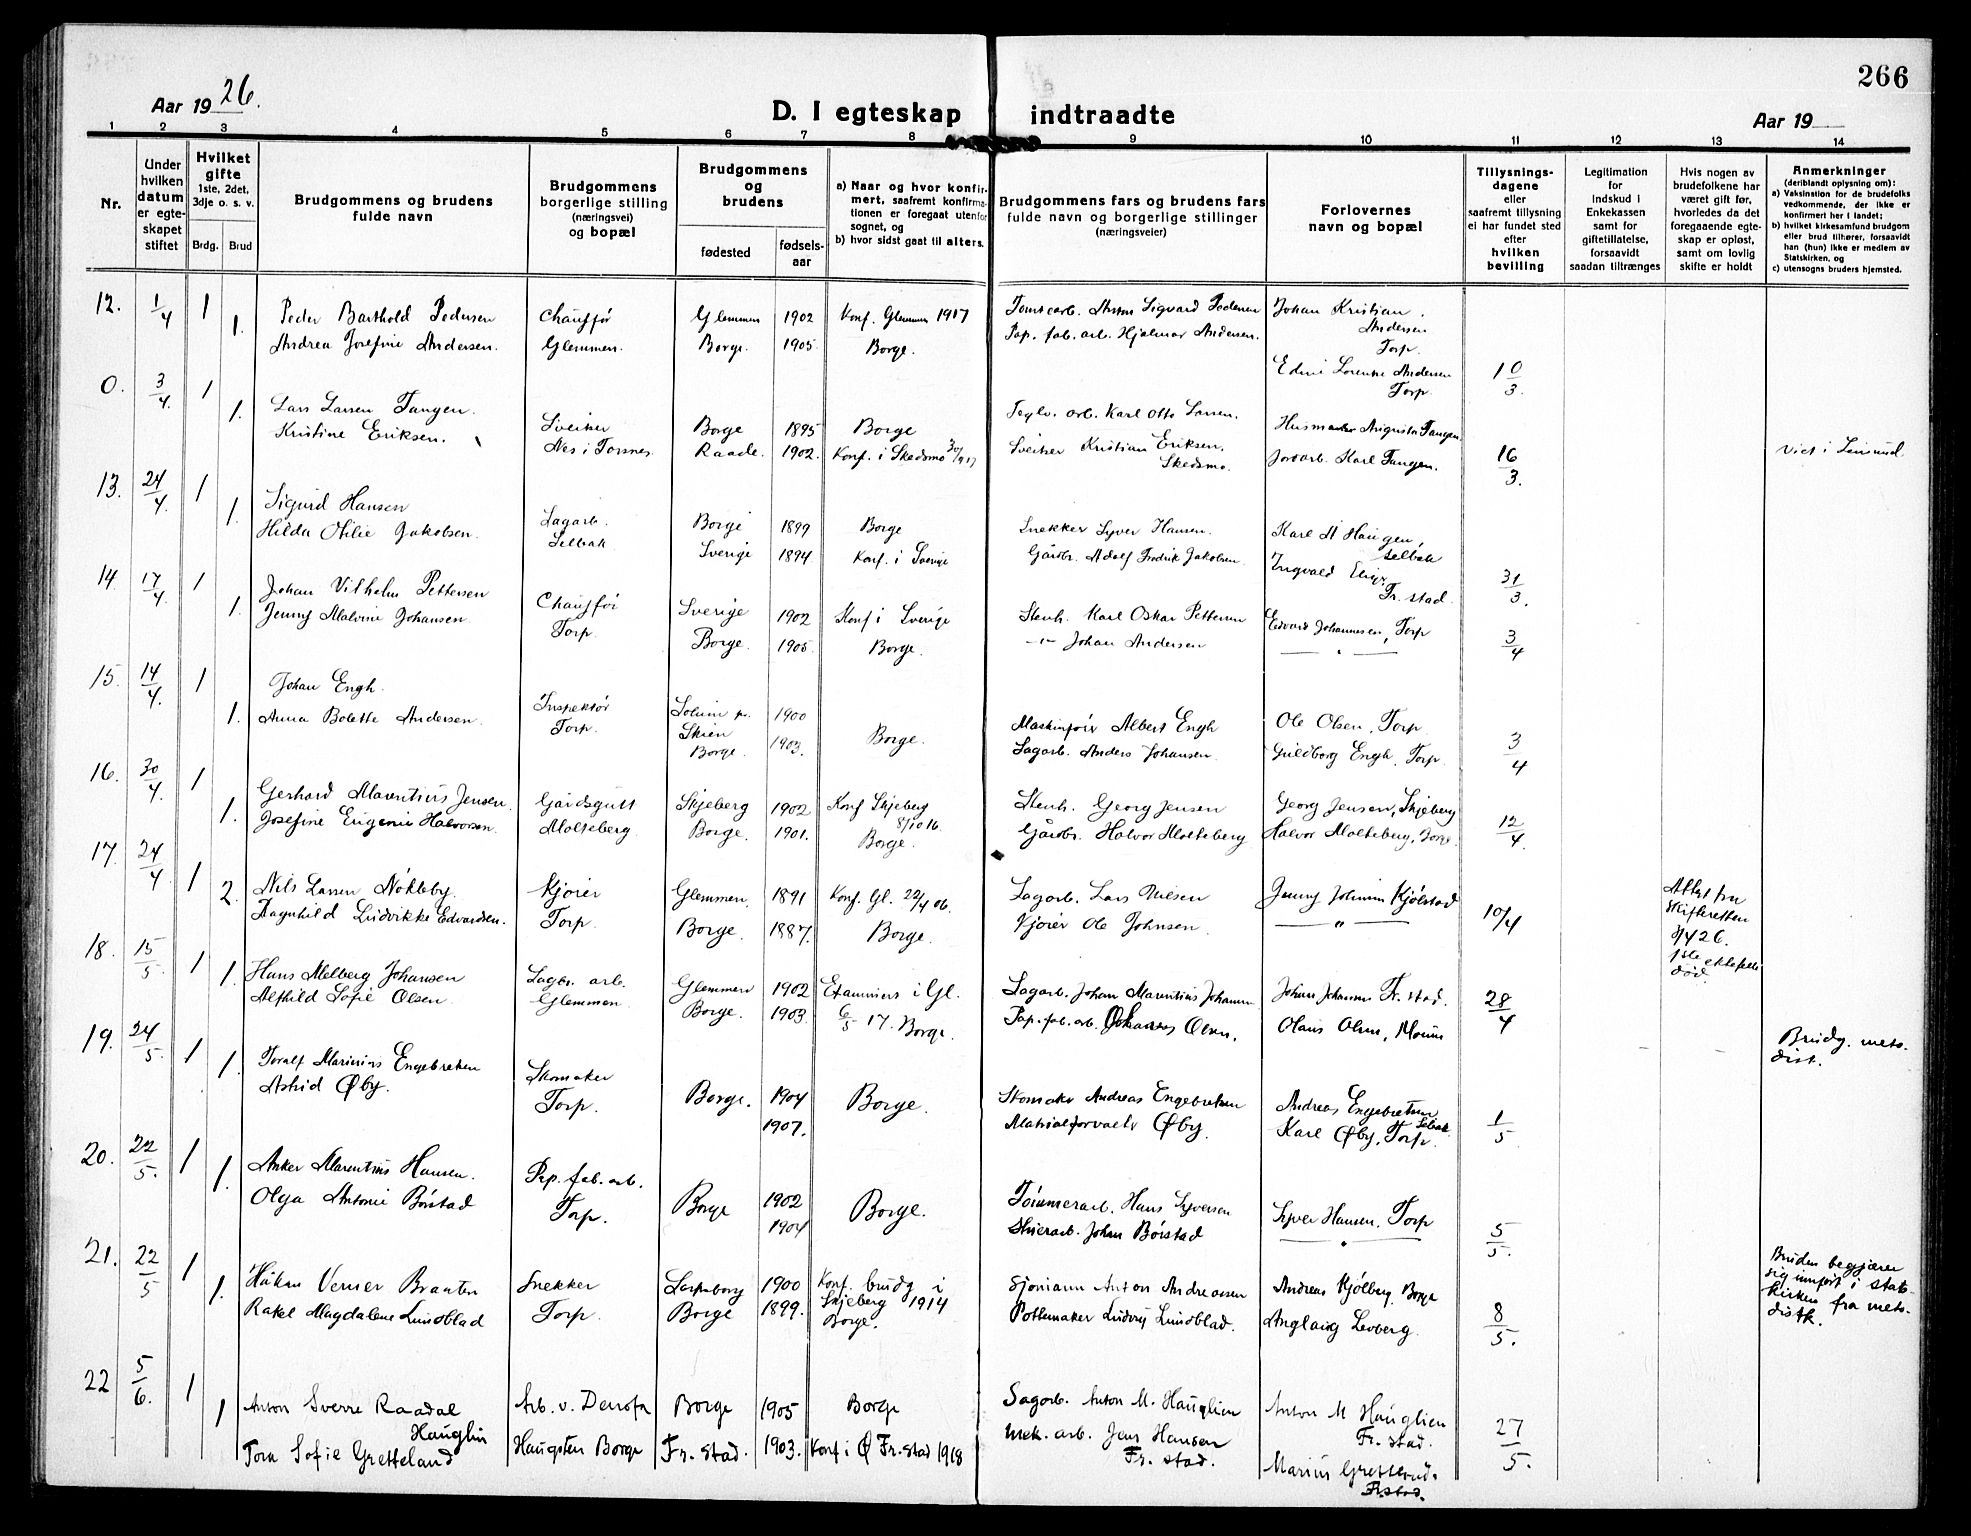 266
Aar 1926.
D. I egteskap indtraadte
Aar 19
1 2 3 4 5 6 7 8 9 10 11 12 13 14
Nr.
Under hvilken datum er egte-skapet stiftet
Hvilket gifte
1ste, 2det, 3dje o. s. v.
Brdg. Brud
Brudgommens og brudens fulde navn
Brudgommens borgerlige stilling (næringsvei) og bopæl
Brudgommens og brudens
fødested
fødsels-aar
a) Naar og hvor konfir-mert, saafremt konfirma-tionen er foregaat utenfor sognet, og
b) hvor sidst gaat til alters.
Brudgommens fars og brudens fars fulde navn og borgerlige stillinger (næringsveier)
Forlovernes navn og bopæl
Tillysnings-dagene eller saafremt tillysning ei har fundet sted efter hvilken bevilling
Legitimation for indskud i Enkekassen samt for giftetillatelse, forsaavidt saadan tiltrænges
Hvis nogen av brudefolkene har været gift før, hvorledes da det foregaaende egte-skap er opløst, samt om lovlig skifte er holdt
Anmerkninger
(deriblandt oplysning om):
a) Vaksination for de brudefolks vedkommende, der ikke er konfirmert her i landet;
b) hvilket kirkesamfund brudgom eller brud tilhører, forsaavidt han (hun) ikke er medlem av Statskirken, og
c) utensogns bruders hjemsted.
12. 1/4 1 Peder Barthold Pedersen Chauffør Glemmen 1902 Konf. Glemmen 1917 Sigvard Pedersen Johan Kristian Andersen Torp.
1. Andrea Josefine Andersen. Glemmen. Borge. 1905 Borge. Pap. fab. arb. Hjalmar Andersen. Andersen Torp. 10/3
0. 3/4. 1 Lars Larsen Tangen. Sveiser Borge 1895 Borge Teglv. arb. Karl Otto Larsen. Augusta Tangen
1. Kristine Eriksen. Nes i Torsnes. Raade. 1902. Konf. i Skedsmo Sveiser Kristian Eriksen. Skedsmo. Karl Tangen. 16/3. Viet i
13. 24/4. 1 Sigurd Hansen Sagarb. Borge 1899 Borge Snekker Syver Hansen. Karl A Haugen, Selbak
1. Hilda Otilie Jakobsen. Selbak Sverige 1894 Konf. i Sverige Gårdbr. Adolf Fredrik Jakobsen Ingvald Fr. stad. 31/3.
14. 17/4. 1 Johan Vilhelm Pettersen Chauffør Sverige 1902 Konf i Sverige Stenh. Karl Oskar Pettersen Edvard Johannesen, Torp
1. Jenny Malvine Johansen Torp. Borge. 1905 Borge. -"- Johan Andersen — " — 3/4
15. 14/4. 1 Johan Engh. Inspektør Solum pr. Skien 1900 Maskinfører Albert Engh Ole Olsen, Torp
1. Anna Bolette Andersen. Torp. Borge. 1903. Borge. Sagarb. Anders Johansen Guldborg Engh, Torp. 3/4
16. 30/4. 1 Gerhard Marentius Jensen. Gårdsgutt Skjeberg 1902 Konf Skjeberg 8/10 16 Stenh. Georg Jensen Georg Jensen, Skjeberg
1. Josefine Eugenie Halvorsen. Molteberg. Borge. 1901. Borge. Gårdbr. Halvor Molteberg Halvor Molteberg, Borge. 12/4.
17. 24/4 1 Nils Larsen Nökleby. Kjører Glemmen 1891 Konf. Gl. 22/4 06. Sagarb. Lars Nilsen Jenny Kjölstad
2. Ragnhild Ludvikke Edvardsen. Torp. Borge. 1887. Borge. Kjører Ole Johnsen. — " — 10/4 Attest fra Skifteretten 3/4 26. 1ste ektefelle død.
18. 15/5. 1 Hans Melberg Johansen Lager arb. Glemmen 1902 Examiners i Gl. 6/5 17. Sagarb. Johan Marentius Johansen Johan Johansen Fr. stad.
1. Alfhild Sofie Olsen. Glemmen Borge. 1903. Borge. Pap. fab. arb. Johannes Olsen, Olaus Olsen, Moum 28/4
19. 24/5. 1 Toralf Marinius Engebretsen Skomaker Borge. 1904 Borge. Skomaker Andreas Engebretsen Andreas Engebretsen Selbak Brudg. meto-dist.
1. Astrid Øby. Torp. 1907. Matrialforvalter Øby. Karl Øby, Torp. 1/5
20. 22/5. 1 Anker Marentius Hansen. Pap. fab. arb. Borge 1902 Borge. Tömmerarb. Hans Syversen Syver Hansen, Torp
1. Olga Antonie Börstad Torp. 1904 Johan Börstad — " — 5/5.
21. 22/5 1 Håkan Verner Braaten Snekker Sarpsborg 1900 Konf. brudg i Skjeberg 1914 Sjömann Anton Andreassen Andreas Kjölberg, Borge Bruden begjærer sig innført i stats-kirken fra meto-distk.
1. Rakel Magdalene Lundblad Torp. Borge 1899. Borge. Pottemaker Ludvig Lundblad. Levberg. 8/5.
22 5/6. 1 Anton Sverre Raadal Hauglin Arb. v. Denofa Borge 1905 Borge Sagarb. Anton M. Hauglien Anton M Hauglien Fr. stad.
1 Tora Sofie Gretteland Haugsten Borge Fr. stad. 1903. Konf i Ø Fr. stad 1918 Mek. arb. Jens Hansen Fr. stad. Marius Frstad. 27/5.